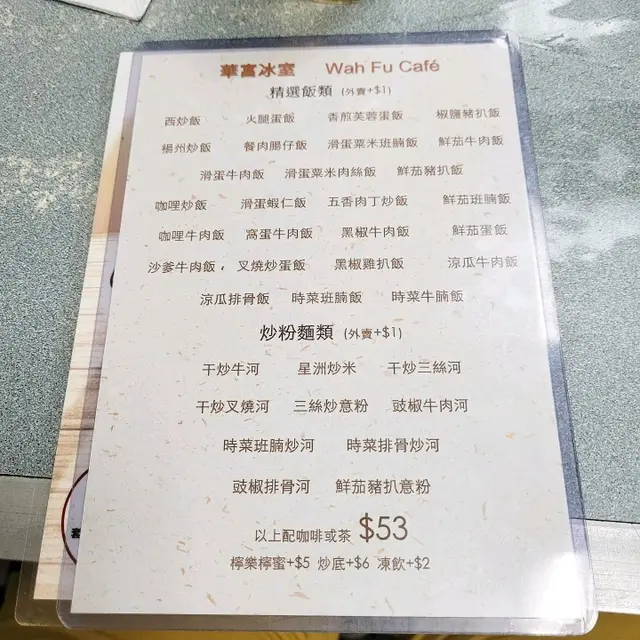 華富冰室 Wah Fu Café
精選飯類 (外賣+$1)
西炒飯 火腿蛋飯 香煎芙蓉蛋飯 椒鹽豬扒飯
楊州炒飯 餐肉腸仔飯 滑蛋粟米班腩飯 鮮茄牛肉飯
滑蛋牛肉飯 滑蛋粟米肉絲飯 鮮茄豬扒飯
咖哩炒飯 滑蛋蝦仁飯 五香肉丁炒飯 鮮茄班腩飯
咖哩牛肉飯 窩蛋牛肉飯 黑椒牛肉飯 鮮茄蛋飯
沙爹牛肉飯, 叉燒炒蛋飯 黑椒雞扒飯 涼瓜牛肉飯
涼瓜排骨飯 時菜班腩飯 時菜牛腩飯
炒粉麵類 (外賣+$1)
干炒牛河 星洲炒米 干炒三絲河
干炒叉燒河 三絲炒意粉 豉椒牛肉河
時菜班腩炒河 時菜排骨炒河
豉椒排骨河 鮮茄豬扒意粉
以上配咖啡或茶 $53
檸樂檸蜜+$5 炒底+$6 凍飲+$2